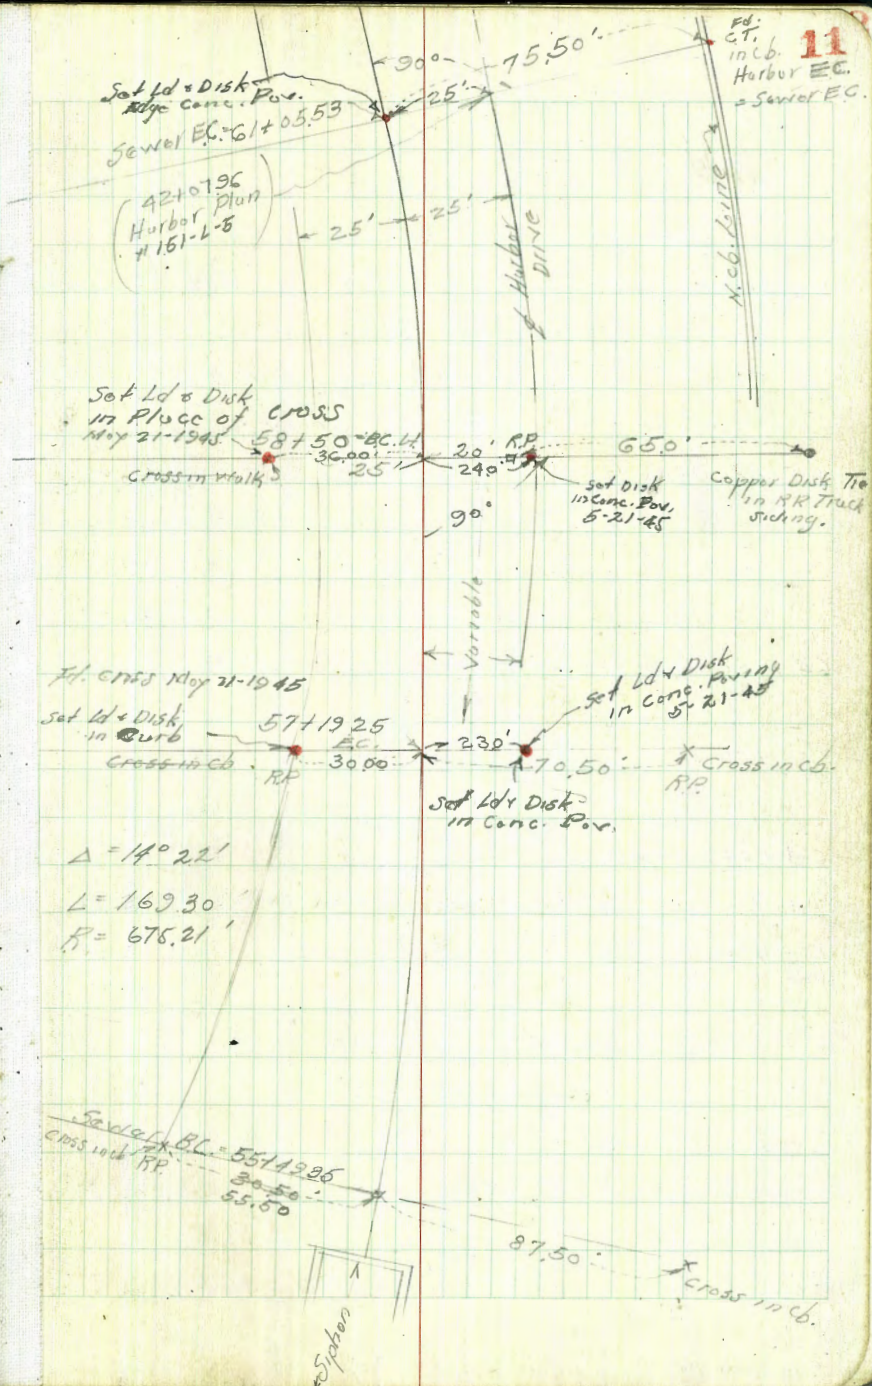 11
Fd.
C.T.
in Cb.
Harbor E.C.
= Sewer E.C.
90°
75.50'
Set Ld & Disk
Edge Conc. Pav.
25'
Sewer E.C. = 61+05.53
(42+07.96
Harbor Plan
# 151-L-5)
25'
25'
Harbor
Drive
N. Cb. Line
Set Ld & Disk
in Place of cross
May 21-1945
58+50 = B.C. Lt.
36.00'
25'
Cross in Walk
20'
R.P.
650'
Set Disk
in Conc. Pav.
5-21-45
Copper Disk Tie
in RR Track
siding.
90°
Variable
Fd. cross May 21-1945
Set Ld & Disk
in Curb
Cross in Cb.
57+19.25
E.C.
30.00
R.P.
230'
Set Ld & Disk
in Conc. Paving
5-21-45
70.50'
Cross in cb.
R.P.
Set Ld & Disk
in Conc. Pav.
Δ = 14° 22'
L = 169.30
R = 675.21'
Sewer B.C. = 55+49.95
Cross in cb.
R.P.
30.50'
55.50
87.50'
Cross in cb.
Siphon